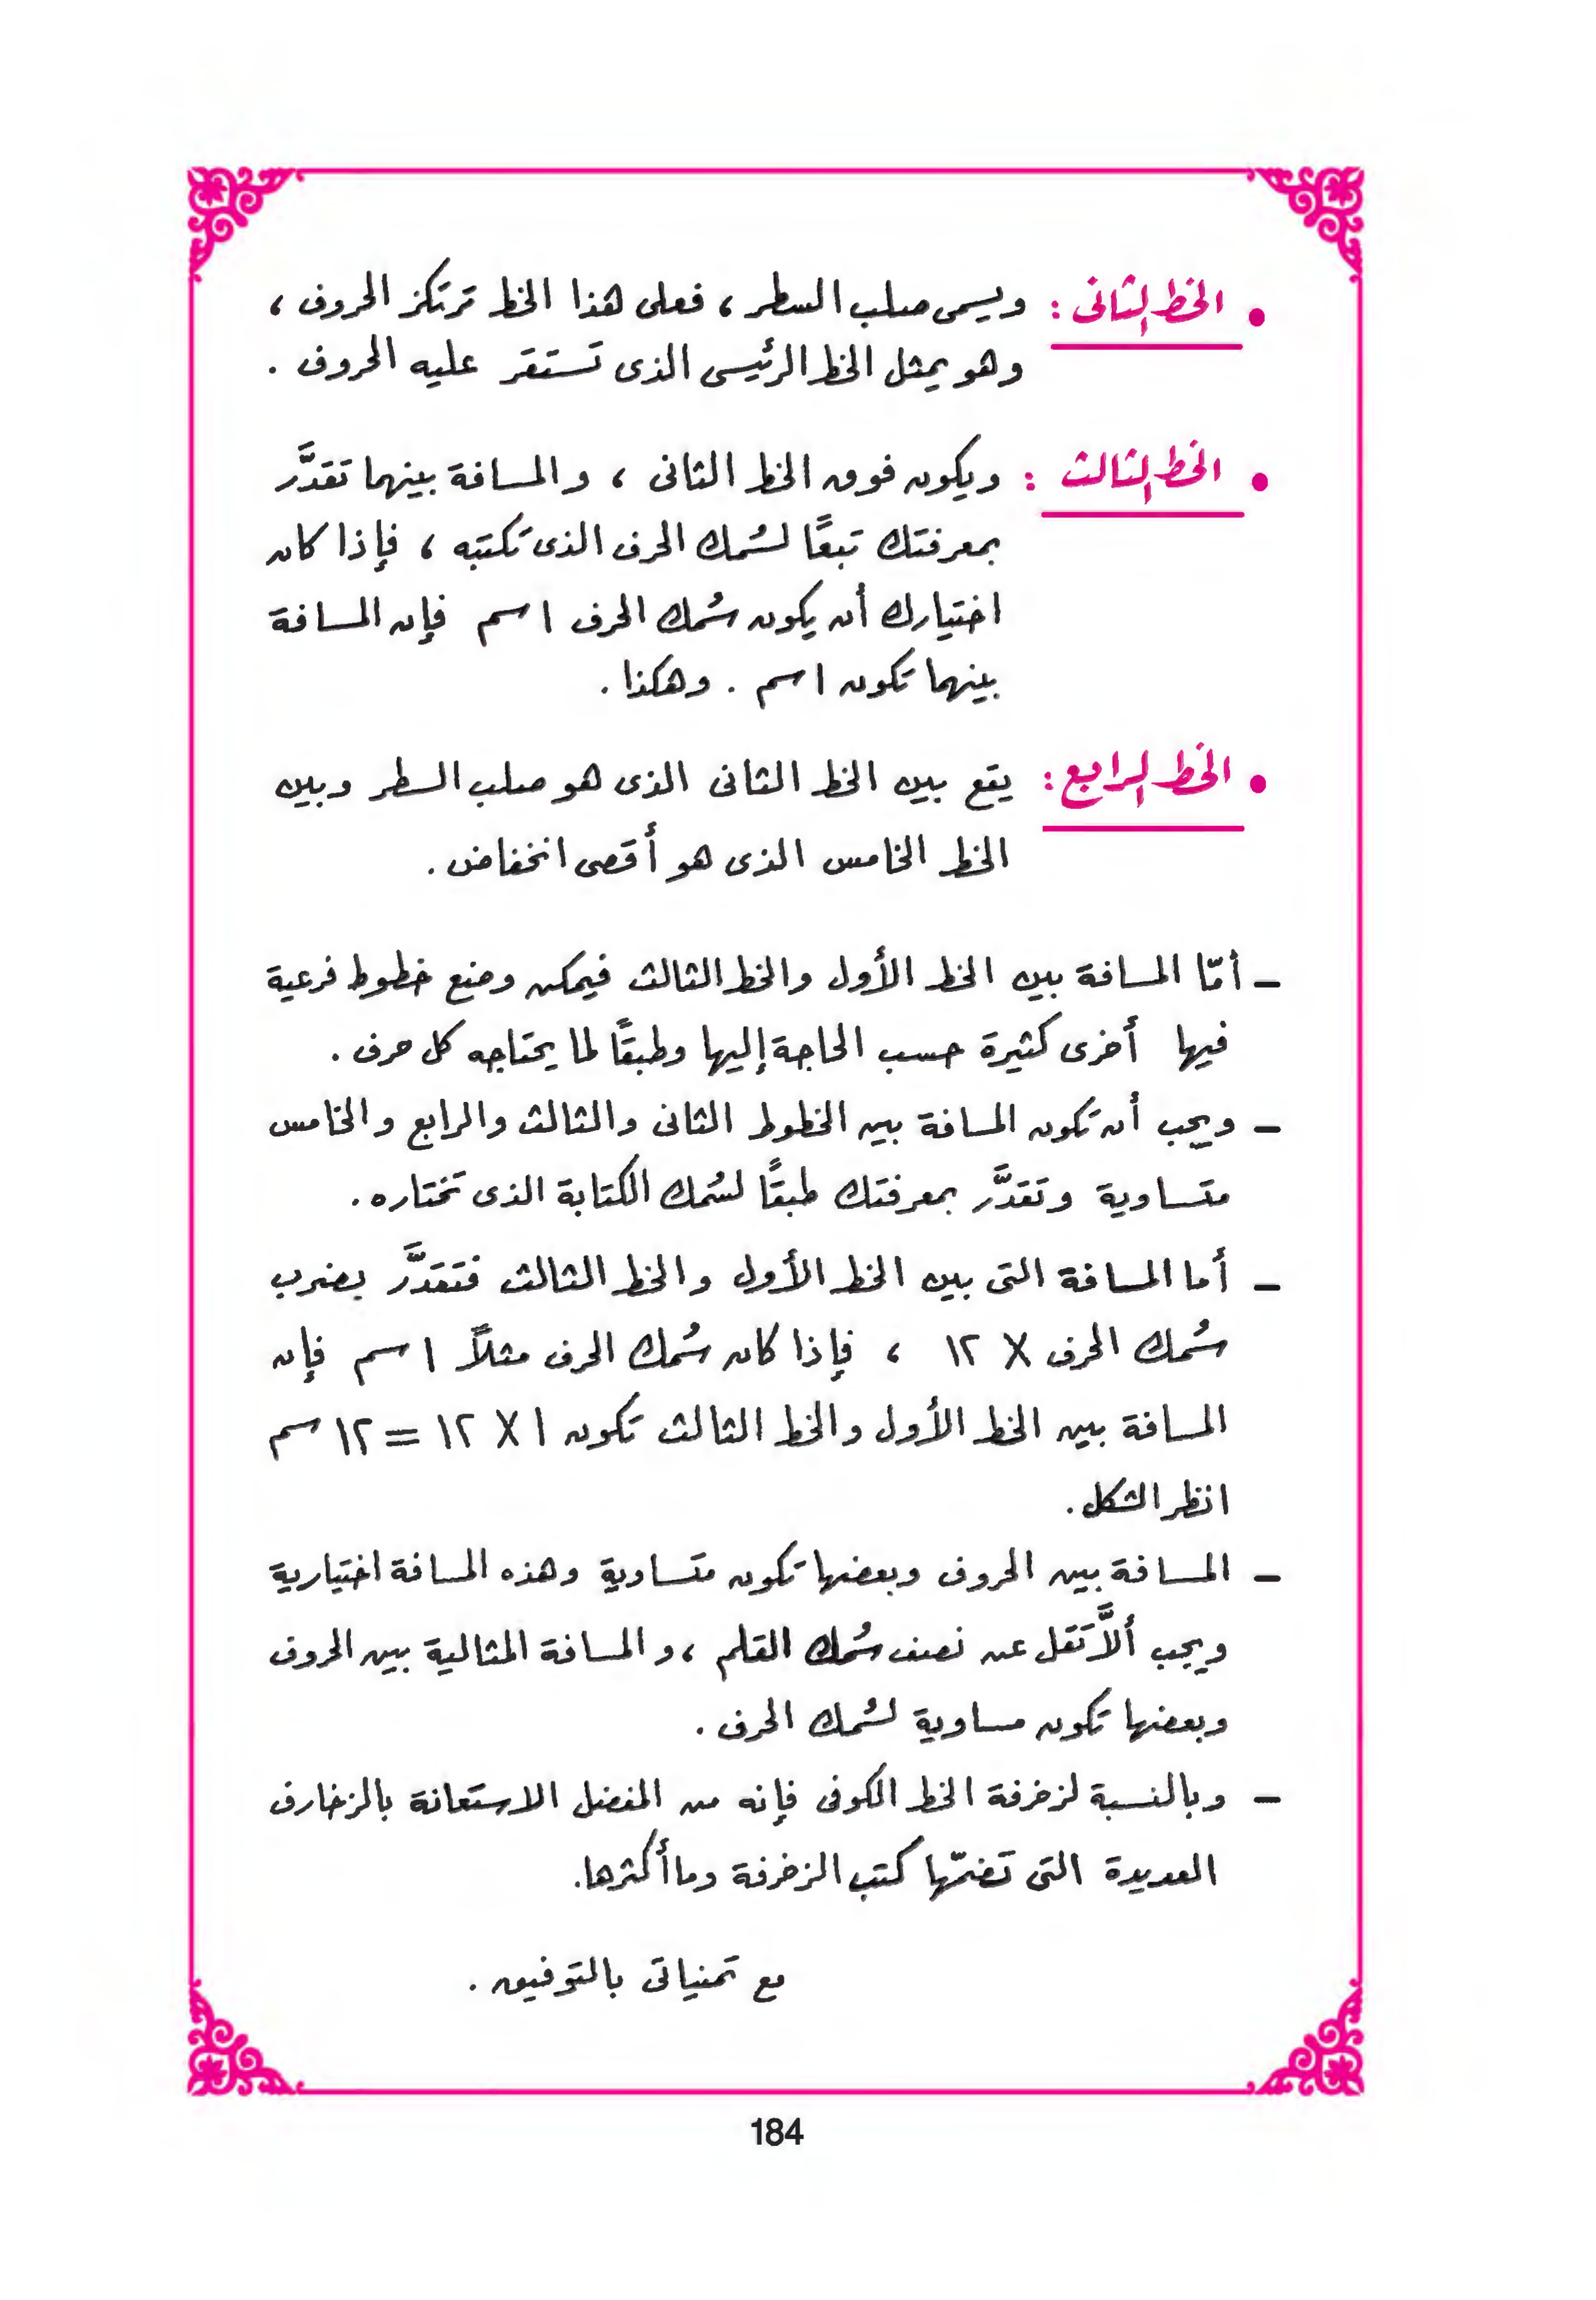 • الخط الثانى : ويسمى صلب السطر ، فعلى هذا الخط ترتكز الحروف ،
وهو يمثل الخط الرئيسى الذى تستقر عليه الحروف .
• الخط الثالث : ويكون فوق الخط الثانى ، والمسافة بينهما تقدَّر
بمعرفتك تبعًا لسُمك الحرف الذى تكتبه ، فإذا كان
اختيارك أن يكون سُمك الحرف ١ سم فإن المسافة
بينهما تكون ١ سم . وهكذا .
• الخط الرابع : يقع بين الخط الثانى الذى هو صلب السطر وبين
الخط الخامس الذى هو أقصى انخفاض .
- أمّا المسافة بين الخط الأول والخط الثالث فيمكن وضع خطوط فرعية
فيها أخرى كثيرة حسب الحاجة إليها وطبقًا لما يحتاجه كل حرف .
- ويجب أن تكون المسافة بين الخطوط الثانى والثالث والرابع والخامس
متساوية وتقدَّر بمعرفتك طبقًا لسُمك الكتابة الذى تختاره .
- أما المسافة التى بين الخط الأول والخط الثالث فتقدَّر بضرب
سُمك الحرف X ١٢ ، فإذا كان سُمك الحرف مثلاً ١ سم فإن
المسافة بين الخط الأول والخط الثالث تكون ١ X ١٢ = ١٢ سم
انظر الشكل .
- المسافة بين الحروف وبعضها تكون متساوية وهذه المسافة اختيارية
ويجب ألاَّ تقل عن نصف سُمك القلم ، والمسافة المثالية بين الحروف
وبعضها تكون مساوية لسُمك الحرف .
- وبالنسبة لزخرفة الخط الكوفى فإنه من المفضل الاستعانة بالزخارف
العديدة التى تضمّها كتب الزخرفة وما أكثرها .
مع تمنياتى بالتوفيق .
184